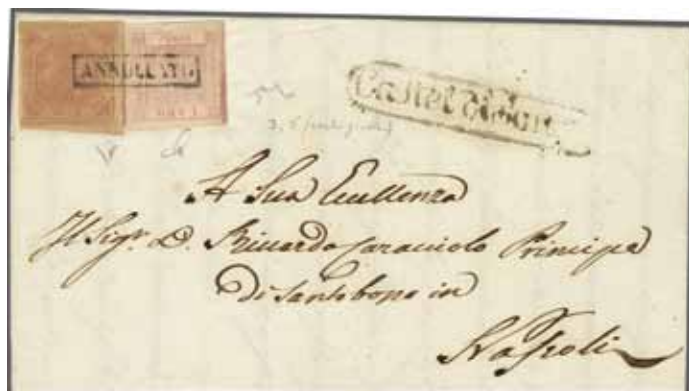 ANNULLATO
Castel di San
A Sua Eccellenza
Il Sigr. D. Riccardo Caracciolo Principe
di Santobono in
Napoli